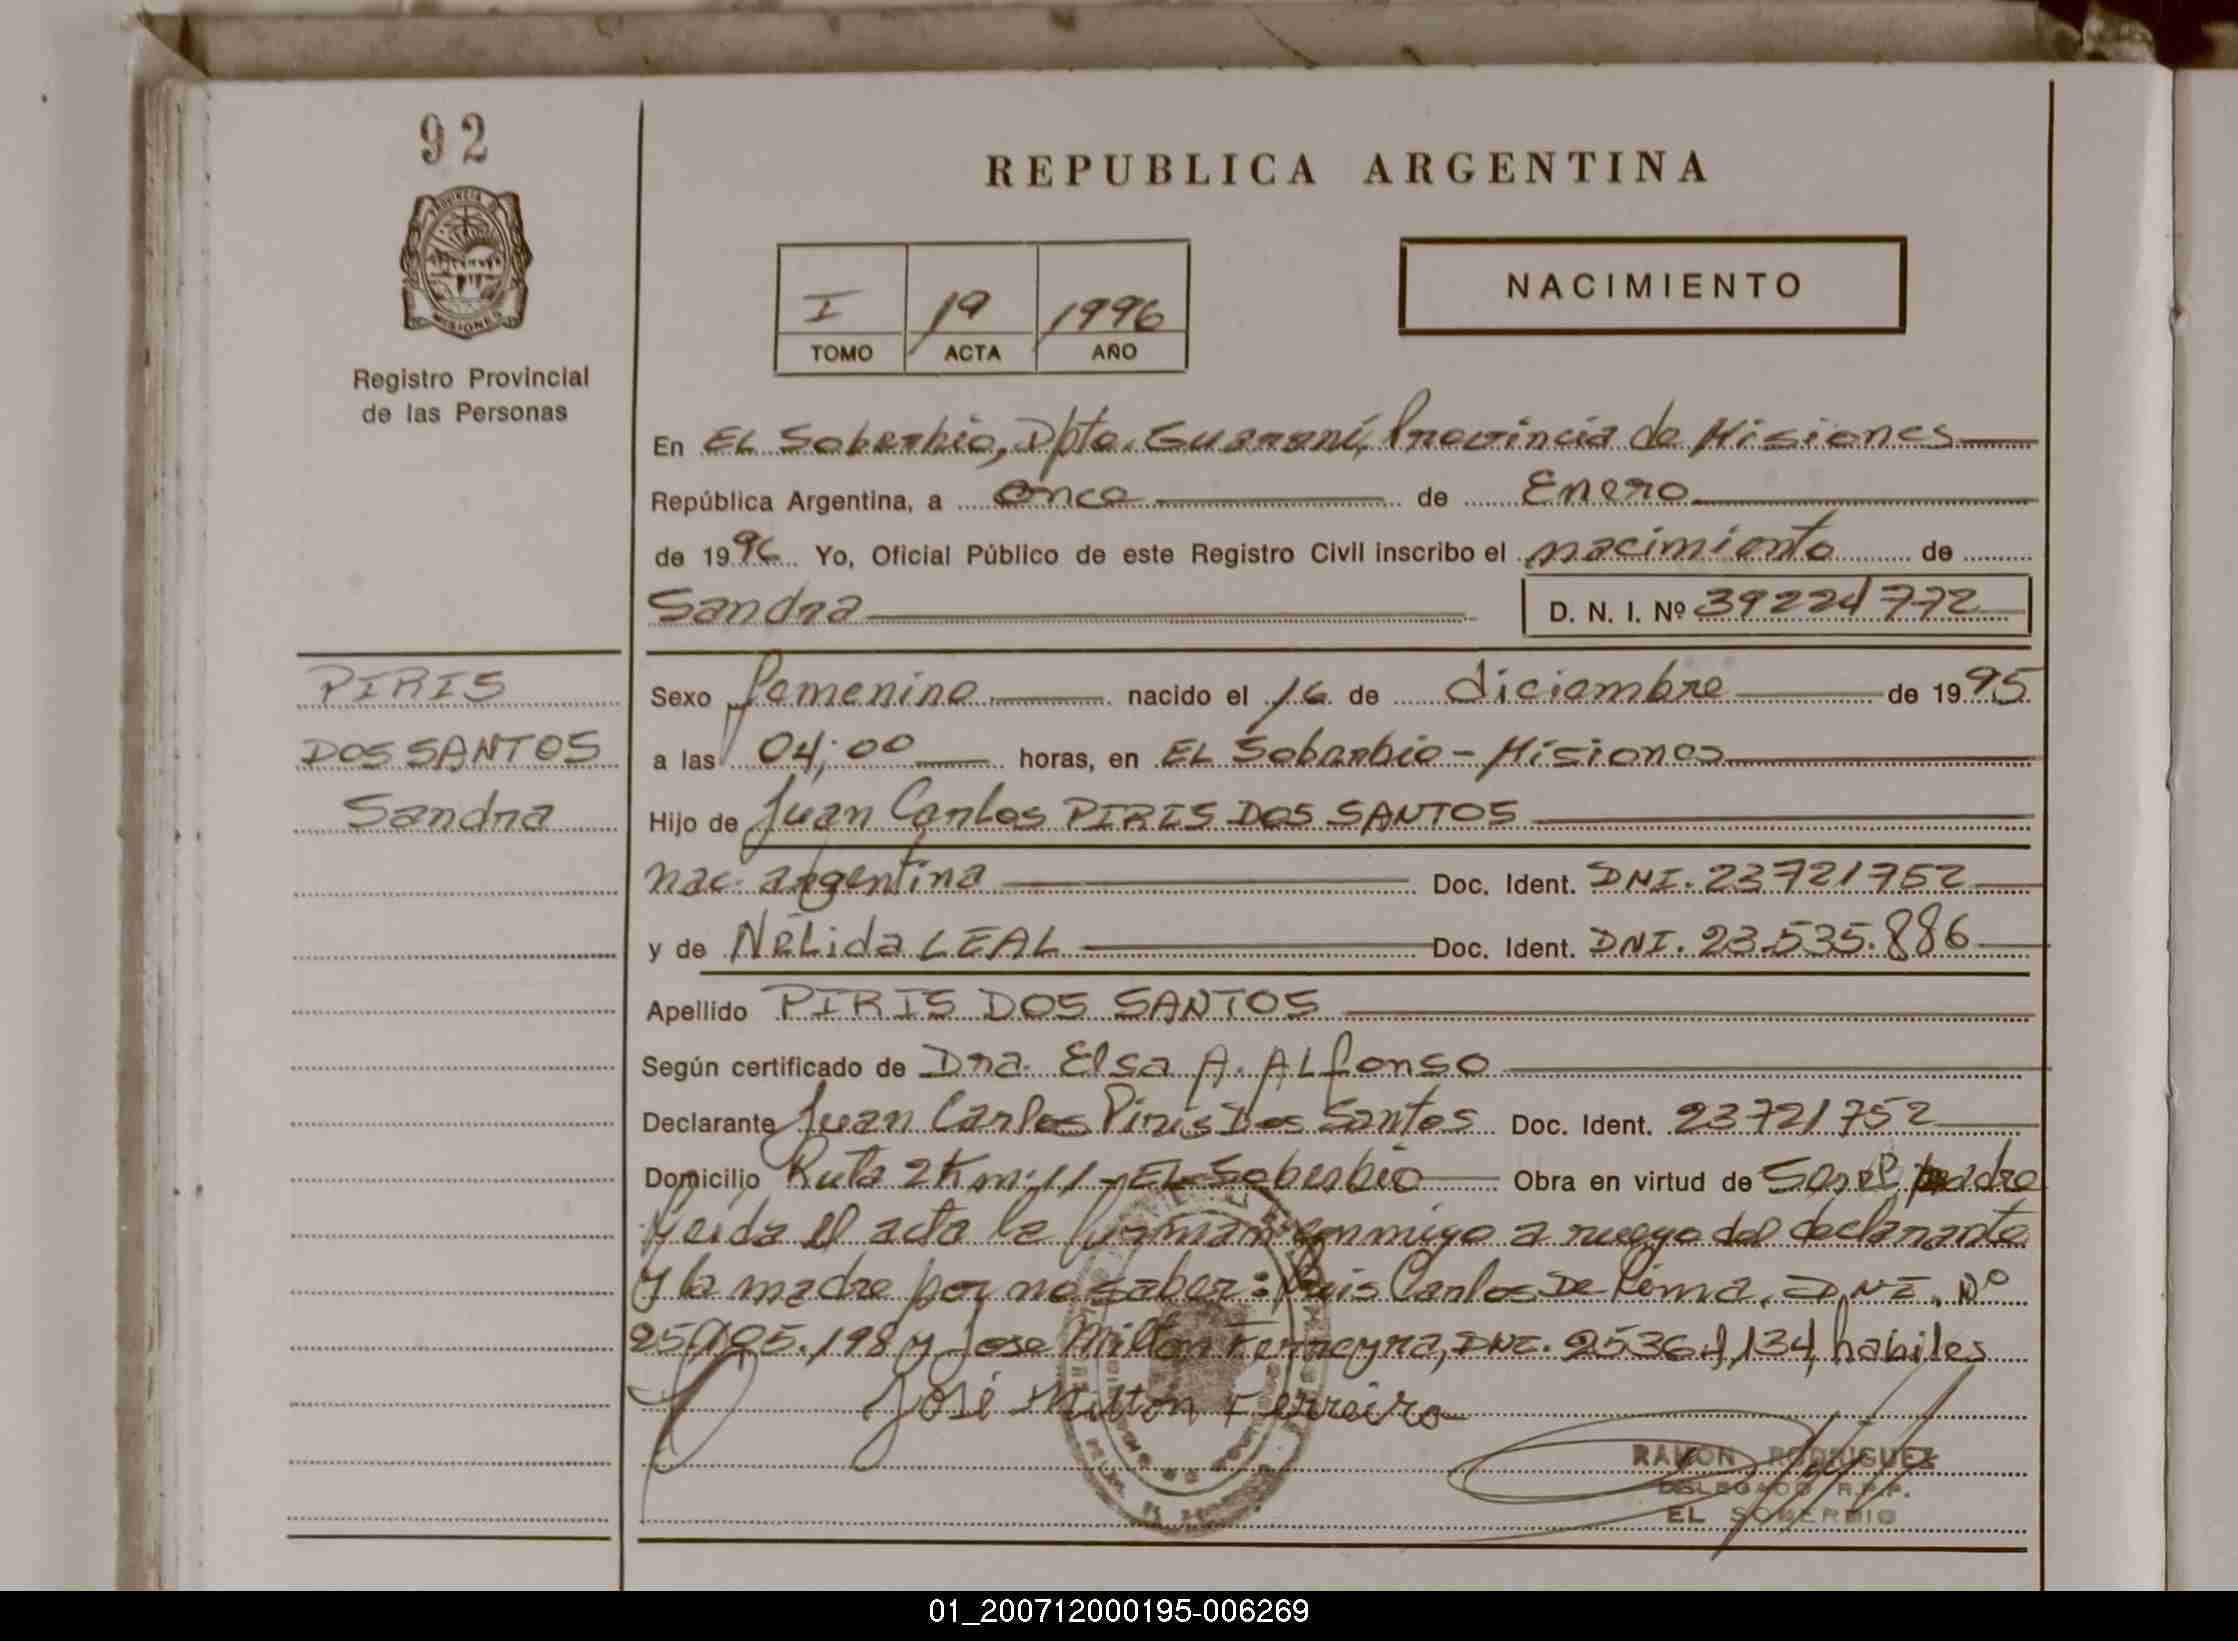 92
PROVINCIA DE
MISIONES
Registro Provincial
de las Personas
PIRIS
DOS SANTOS
Sandra
REPUBLICA ARGENTINA
I 19 1996
TOMO ACTA AÑO
NACIMIENTO
En EL Soberbio, Dpto. Guaraní, Provincia de Misiones
República Argentina, a once de Enero
de 1996 Yo, Oficial Público de este Registro Civil inscribo el nacimiento de
Sandra D. N. I. Nº 39224772
Sexo femenino nacido el 16 de diciembre de 1995
a las 04:00 horas, en EL Soberbio - Misiones
Hijo de Juan Carlos PIRIS DOS SANTOS
nac. argentina Doc. Ident. DNI. 23721752
y de Nélida LEAL Doc. Ident. DNI. 23.535.886
Apellido PIRIS DOS SANTOS
Según certificado de Dra. Elsa A. ALfonso
Declarante Juan Carlos Piris Dos Santos Doc. Ident. 23721752
Domicilio Ruta 2 Km: 11 - EL Soberbio Obra en virtud de Ser el padre
Leida el acta la firman conmigo a ruego del declarante
y la madre por no saber: Luis Carlos De Lima, DNI. Nº
y Jose Milton Ferreyra, DNI. habiles
José Milton Ferreira
RAMON RODRIGUEZ
DELEGADO R.P.P.
EL SOBERBIO
01_200712000195-006269